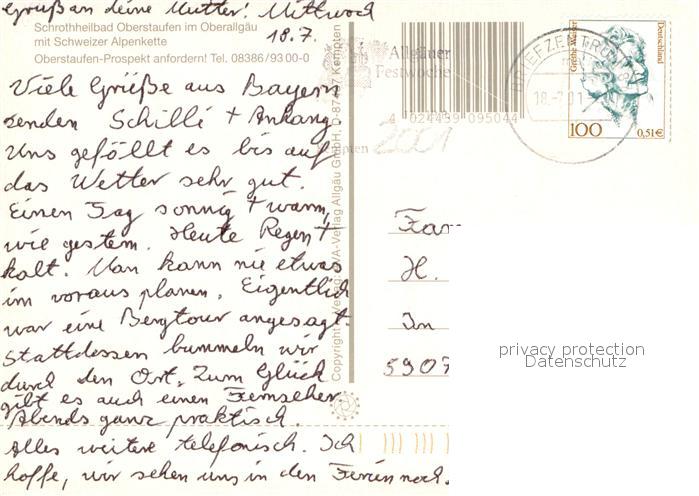 Gruß an deine Mutter! Mittwoch
18.7.
Schrothheilbad Oberstaufen im Oberallgäu
mit Schweizer Alpenkette
Oberstaufen-Prospekt anfordern! Tel. 08386/9300-0
Viele Grüße aus Bayern
senden Schilli + Anhang.
Uns gefällt es bis auf
das Wetter sehr gut.
Einen Tag sonnig + warm,
wie gestern. Heute Regen +
kalt. Man kann nie etwas
im voraus planen. Eigentlich
war eine Bergtour angesagt.
Stattdessen bummeln wir
durch den Ort. Zum Glück
gibt es auch einen Fernseher.
Abends ganz praktisch.
Alles weitere telefonisch. Ich
hoffe, wir sehen uns in den Ferien noch.
Allgäuer
Festwoche
4 024439 095044
2001
BRIEFZENTRUM
18.-7.01
Grethe Weiser
Deutschland
100
0,51€
Fam
H.
In
5907
privacy protection
Datenschutz